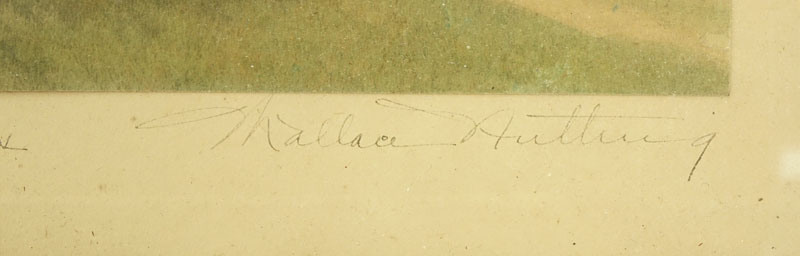 Wallace Nutting